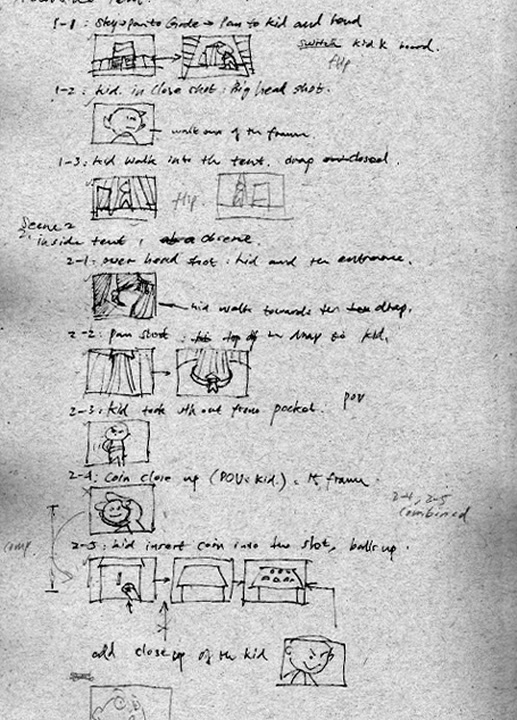 1-1: Sky → pan to Grade → Pan to kid and board
switch kid & board.
flip
1-2: kid in close shot: Big head shot.
walk out of the frame
1-3: kid walk into the tent. drap closed.
flip
Scene 2
2. inside tent,
2-1: over head shot: kid and the entrance.
kid walk towards the drap.
2-2: pan shot: top of the drap to kid.
2-3: kid took sth out from pocket. pov
2-4: Coin close up (POV: kid.) frame
2-4, 2-5
combined
comp.
2-5: kid insert coin into the slot, balls up.
add close up of the kid